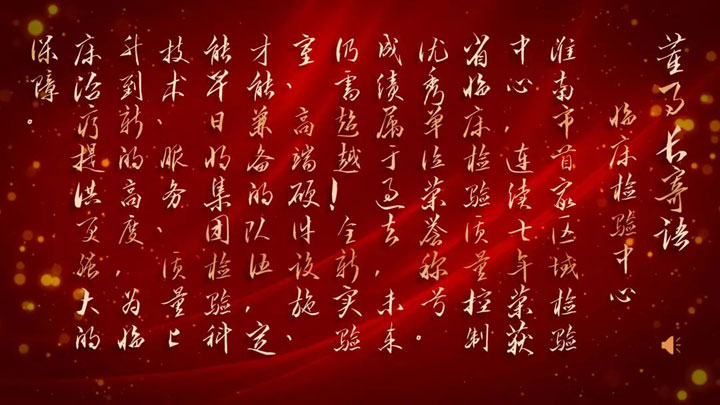 董事长寄语
临床检验中心
淮南市首家区域检验
中心，连续七年荣获
省临床检验质量控制
优秀单位荣誉称号。
成绩属于过去，未来
仍需超越！全新实验
室、高端硬件设施、
才能兼备的队伍，定
能早日将集团检验科
技术、服务、质量上
升到新的高度，为临
床治疗提供更强大的
保障。